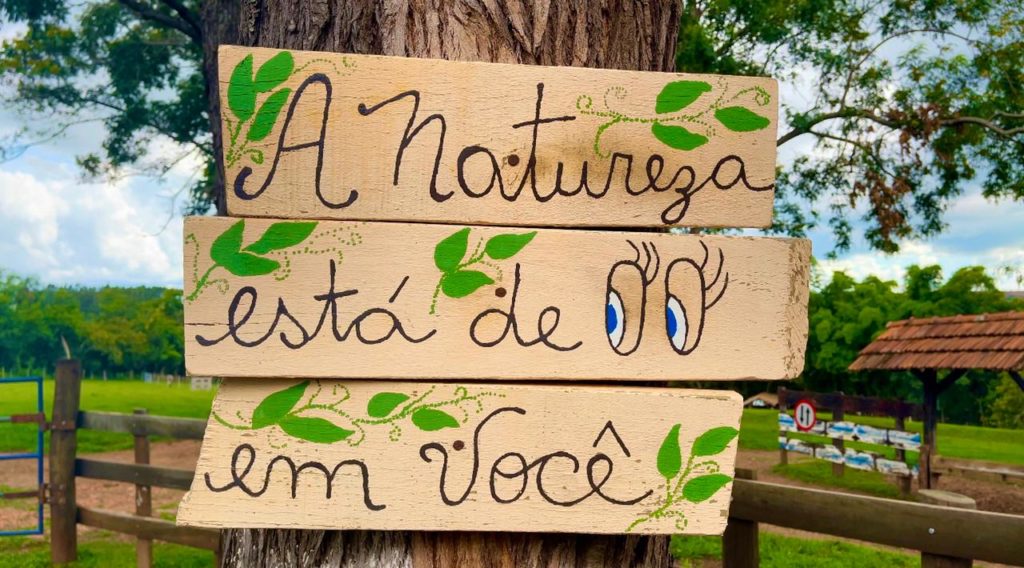 A Natureza
está de
em Você